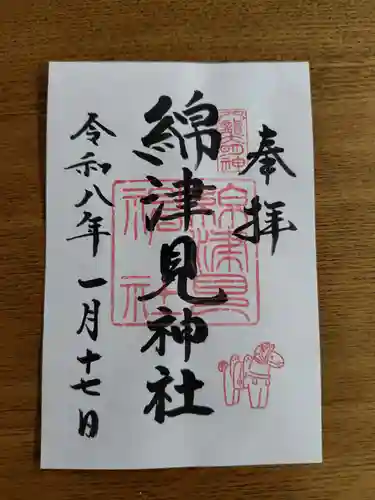 奉拝
綿津見神社
綿津見
神社
令和八年一月十七日